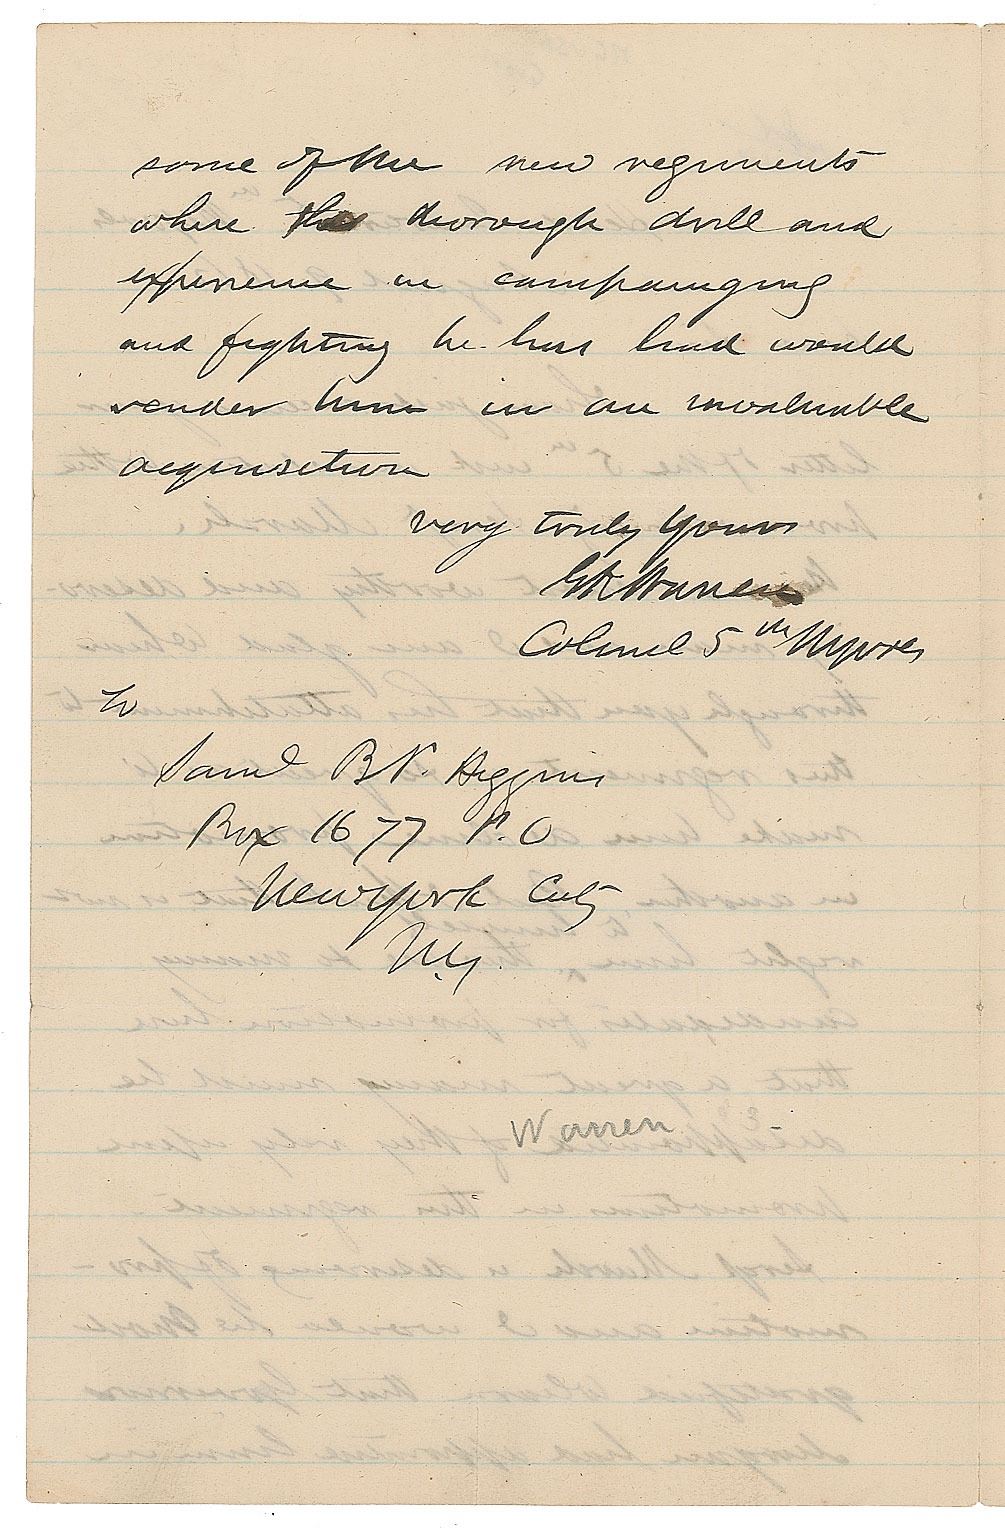 some of the new regiments
where the thorough drill and
experience in campaigning
and fighting he has had would
render him in an invaluable
acquisition
very truly yours
GK Warren
Colonel 5th NY Vols
To
Saml B Higgins
Box 1677 P.O
New York City
N.Y.
Warren